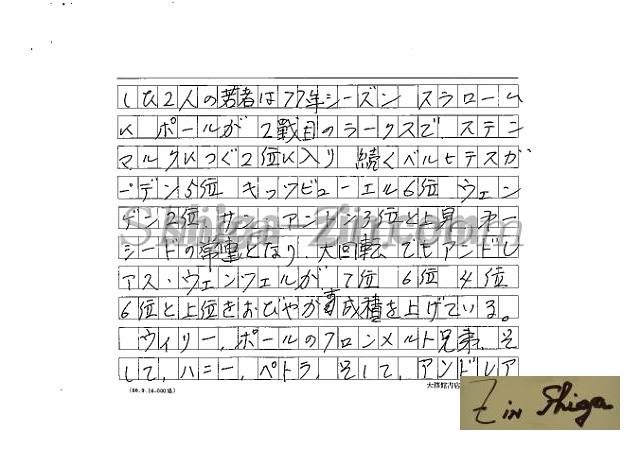 した2人の若者は77年シーズン スラローム
に ポールが 2戦目のラークスで ステン
マルクにつぐ2位に入り 続くベルヒテスガ
ーデン5位 キッツビューエル6位 ウェン
ゲン2位 サン・アントン3位と上昇 第一
シードの常連となり、大回転でもアンドレ
アス・ウェンツェルが 7位 6位 4位
6位と上位をおびやかす成積を上げている。
ウィリー、ポールのフロンメルト兄弟、そ
して、ハニー、ペトラ、そして、アンドレア
大修館書店
Z in Shiga
Shiga-Zin.com